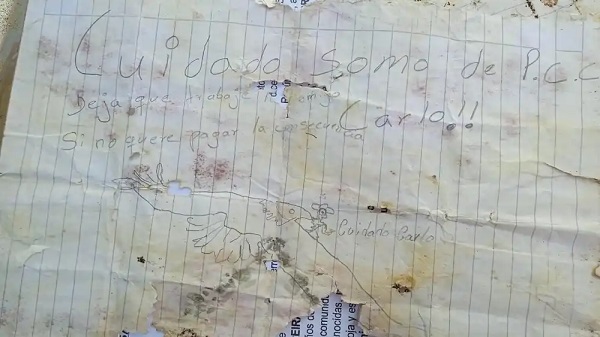 Cuidado somo de P.C.C
Deja que trabaje
Carlo!!
Si no quere pagar la consecuencia
Carlo
EIR
comunid
nocidas
oja y es